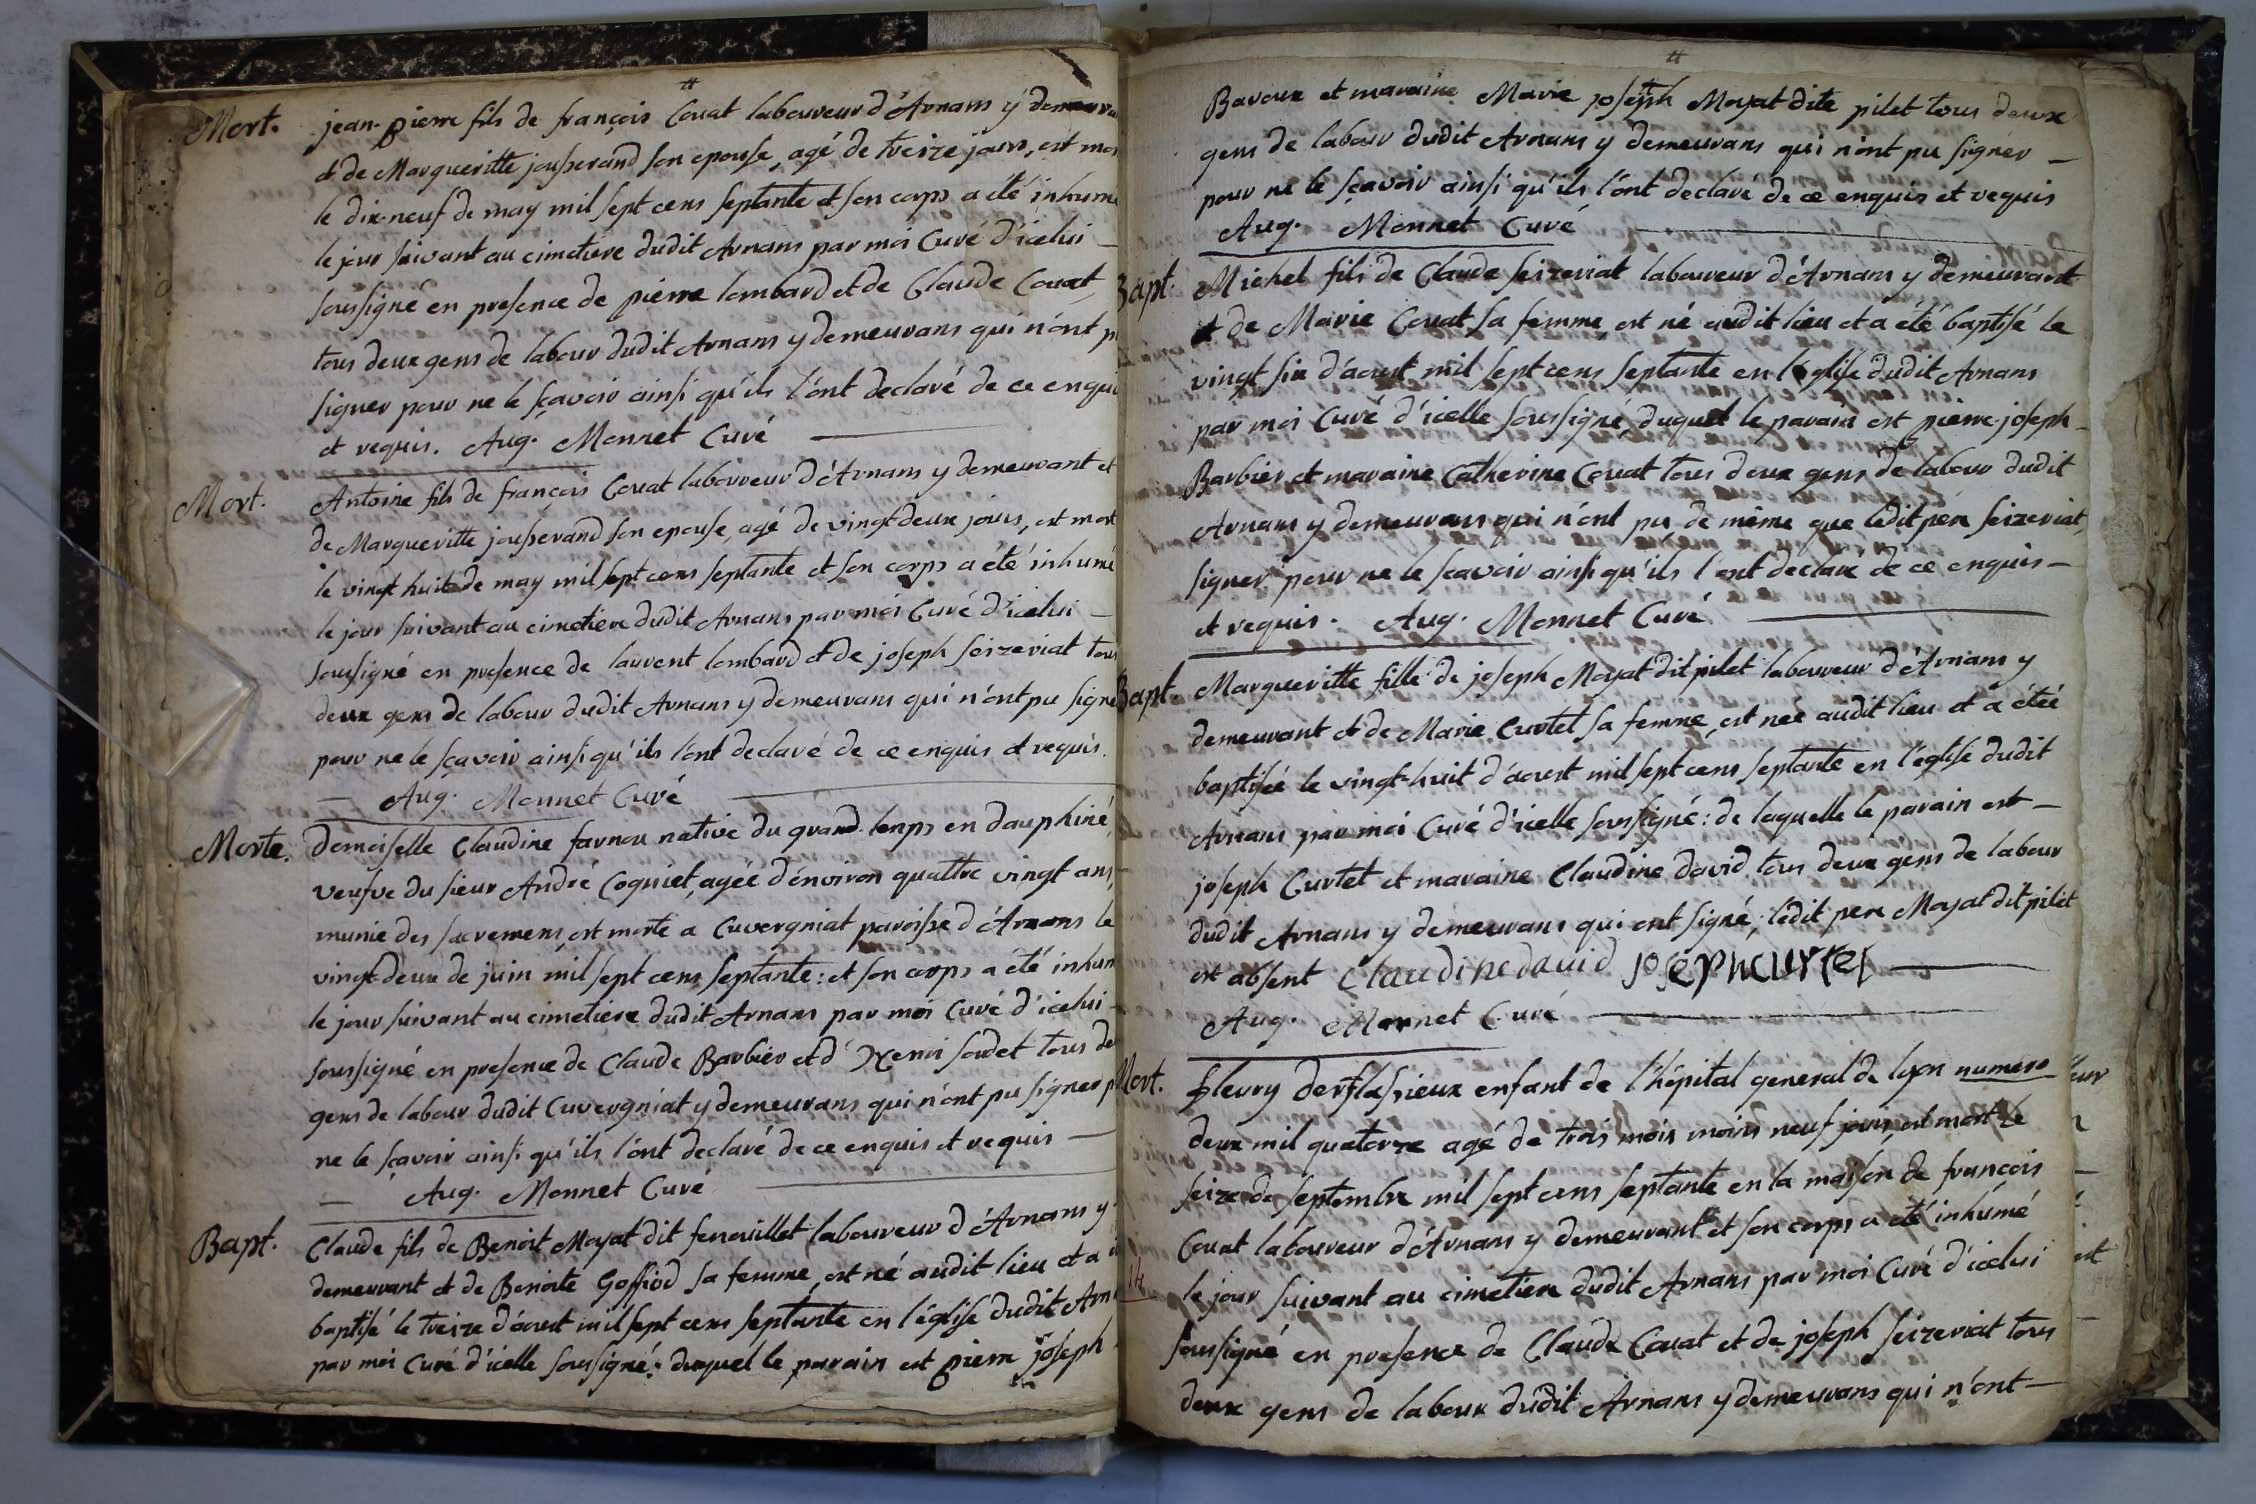 Mort. jean-pierre fils de françois Couat laboureur d'Arnans y demeurant
et de Margueritte jousserand son epouse, agé de treize jours, est mort
le dix-neuf de may mil sept cens septante et son corps a été inhumé
le jour suivant au cimetiere dudit Arnans par moi Curé d'icelui
soussigné en presence de pierre lombard et de Claude Couat
tous deux gens de labour dudit Arnans y demeurans qui n'ont p
signer pour ne le sçavoir ainsi qu'ils l'ont declaré de ce enquis
et requis. Aug. Monnet Curé
Mort. Antoine fils de françois Couat laboureur d'Arnans y demeurant et
de Margueritte jousserand son epouse, agé de vingt-deux jours, est mort
le vingt huit de may mil sept cens septante et son corps a été inhumé
le jour suivant au cimetiere dudit Arnans par moi Curé d'icelui
soussigné en presence de laurent lombard et de joseph seizeriat tous
deux gens de labour dudit Arnans y demeurans qui n'ont pu signe
pour ne le sçavoir ainsi qu'ils l'ont declaré de ce enquis et requis.
Aug. Monnet Curé
Morte. Demoiselle Claudine farnou native du grand-lemps en dauphiné,
veufve du sieur André Cogniet, agée d'environ quattre vingt ans,
munie des sacremens, est morte a Cuvergniat paroisse d'Arnans le
vingt-deux de juin mil sept cens septante: et son corps a été inhum
le jour suivant au cimetiere dudit Arnans par moi Curé d'icelui
soussigné en presence de Claude Barbier et d' sordet tous de
gens de labour dudit Cuvergniat y demeurans qui n'ont pu signer p
ne le sçavoir ainsi qu'ils l'ont declaré de ce enquis et requis
Aug. Monnet Curé
Bapt. Claude fils de Benoit Moyat dit fenouillet laboureur d'Arnans y
demeurant et de Benoite Goffiod sa femme, est né audit lieu et a
baptisé le treize d'aoust mil sept cens septante en l'église dudit Arn
par moi Curé d'icelle soussigné: duquel le parain est pierre joseph
Bavoux et maraine Marie joseph Moyat dite pilet tous deux
gens de labour dudit Arnans y demeurans qui n'ont pu signer
pour ne le sçavoir ainsi qu'ils l'ont declaré de ce enquis et requis
Aug. Monnet Curé
Bapt. Michel fils de Claude seizeriat laboureur d'Arnans y demeurant
et de Marie Couat sa femme, est né audit lieu et a été baptisé le
vingt six d'aoust mil sept cens septante en l'église dudit Arnans
par moi Curé d'icelle soussigné, duquel le parain est pierre-joseph
Barbier et maraine Catherine Couat tous deux gens de labour dudit
Arnans y demeurans qui n'ont pu de même que ledit pere seizeriat
signer pour ne le sçavoir ainsi qu'ils l'ont declaré de ce enquis
et requis. Aug. Monnet Curé
Bapt. Margueritte fille de joseph Moyat dit pilet laboureur d'Arnans y
demeurant et de Marie Curtet sa femme, est née audit lieu et a étéé
baptisée le vingt-huit d'aoust mil sept cens septante en l'église dudit
Arnans par moi Curé d'icelle soussigné: de laquelle le parain est
joseph Curtet et maraine Claudine david tous deux gens de labour
dudit Arnans y demeurans qui ont signé; ledit pere Moyat dit pilet
est absent Claudine david joseph curtet
Aug. Monnet Curé
Mort. fleury derflassieux enfant de l'hôpital general de lyon numero
deux mil quatorze agé de trois mois moins neuf jours, est mort le
seize de septembre mil sept cens septante en la maison de françois
Couat laboureur d'Arnans y demeurant et son corps a été inhumé
14
le jour suivant au cimetiere dudit Arnans par moi Curé d'icelui
soussigné en presence de Claude Couat et de joseph seizeriat tous
deux gens de labour dudit Arnans y demeurans qui n'ont